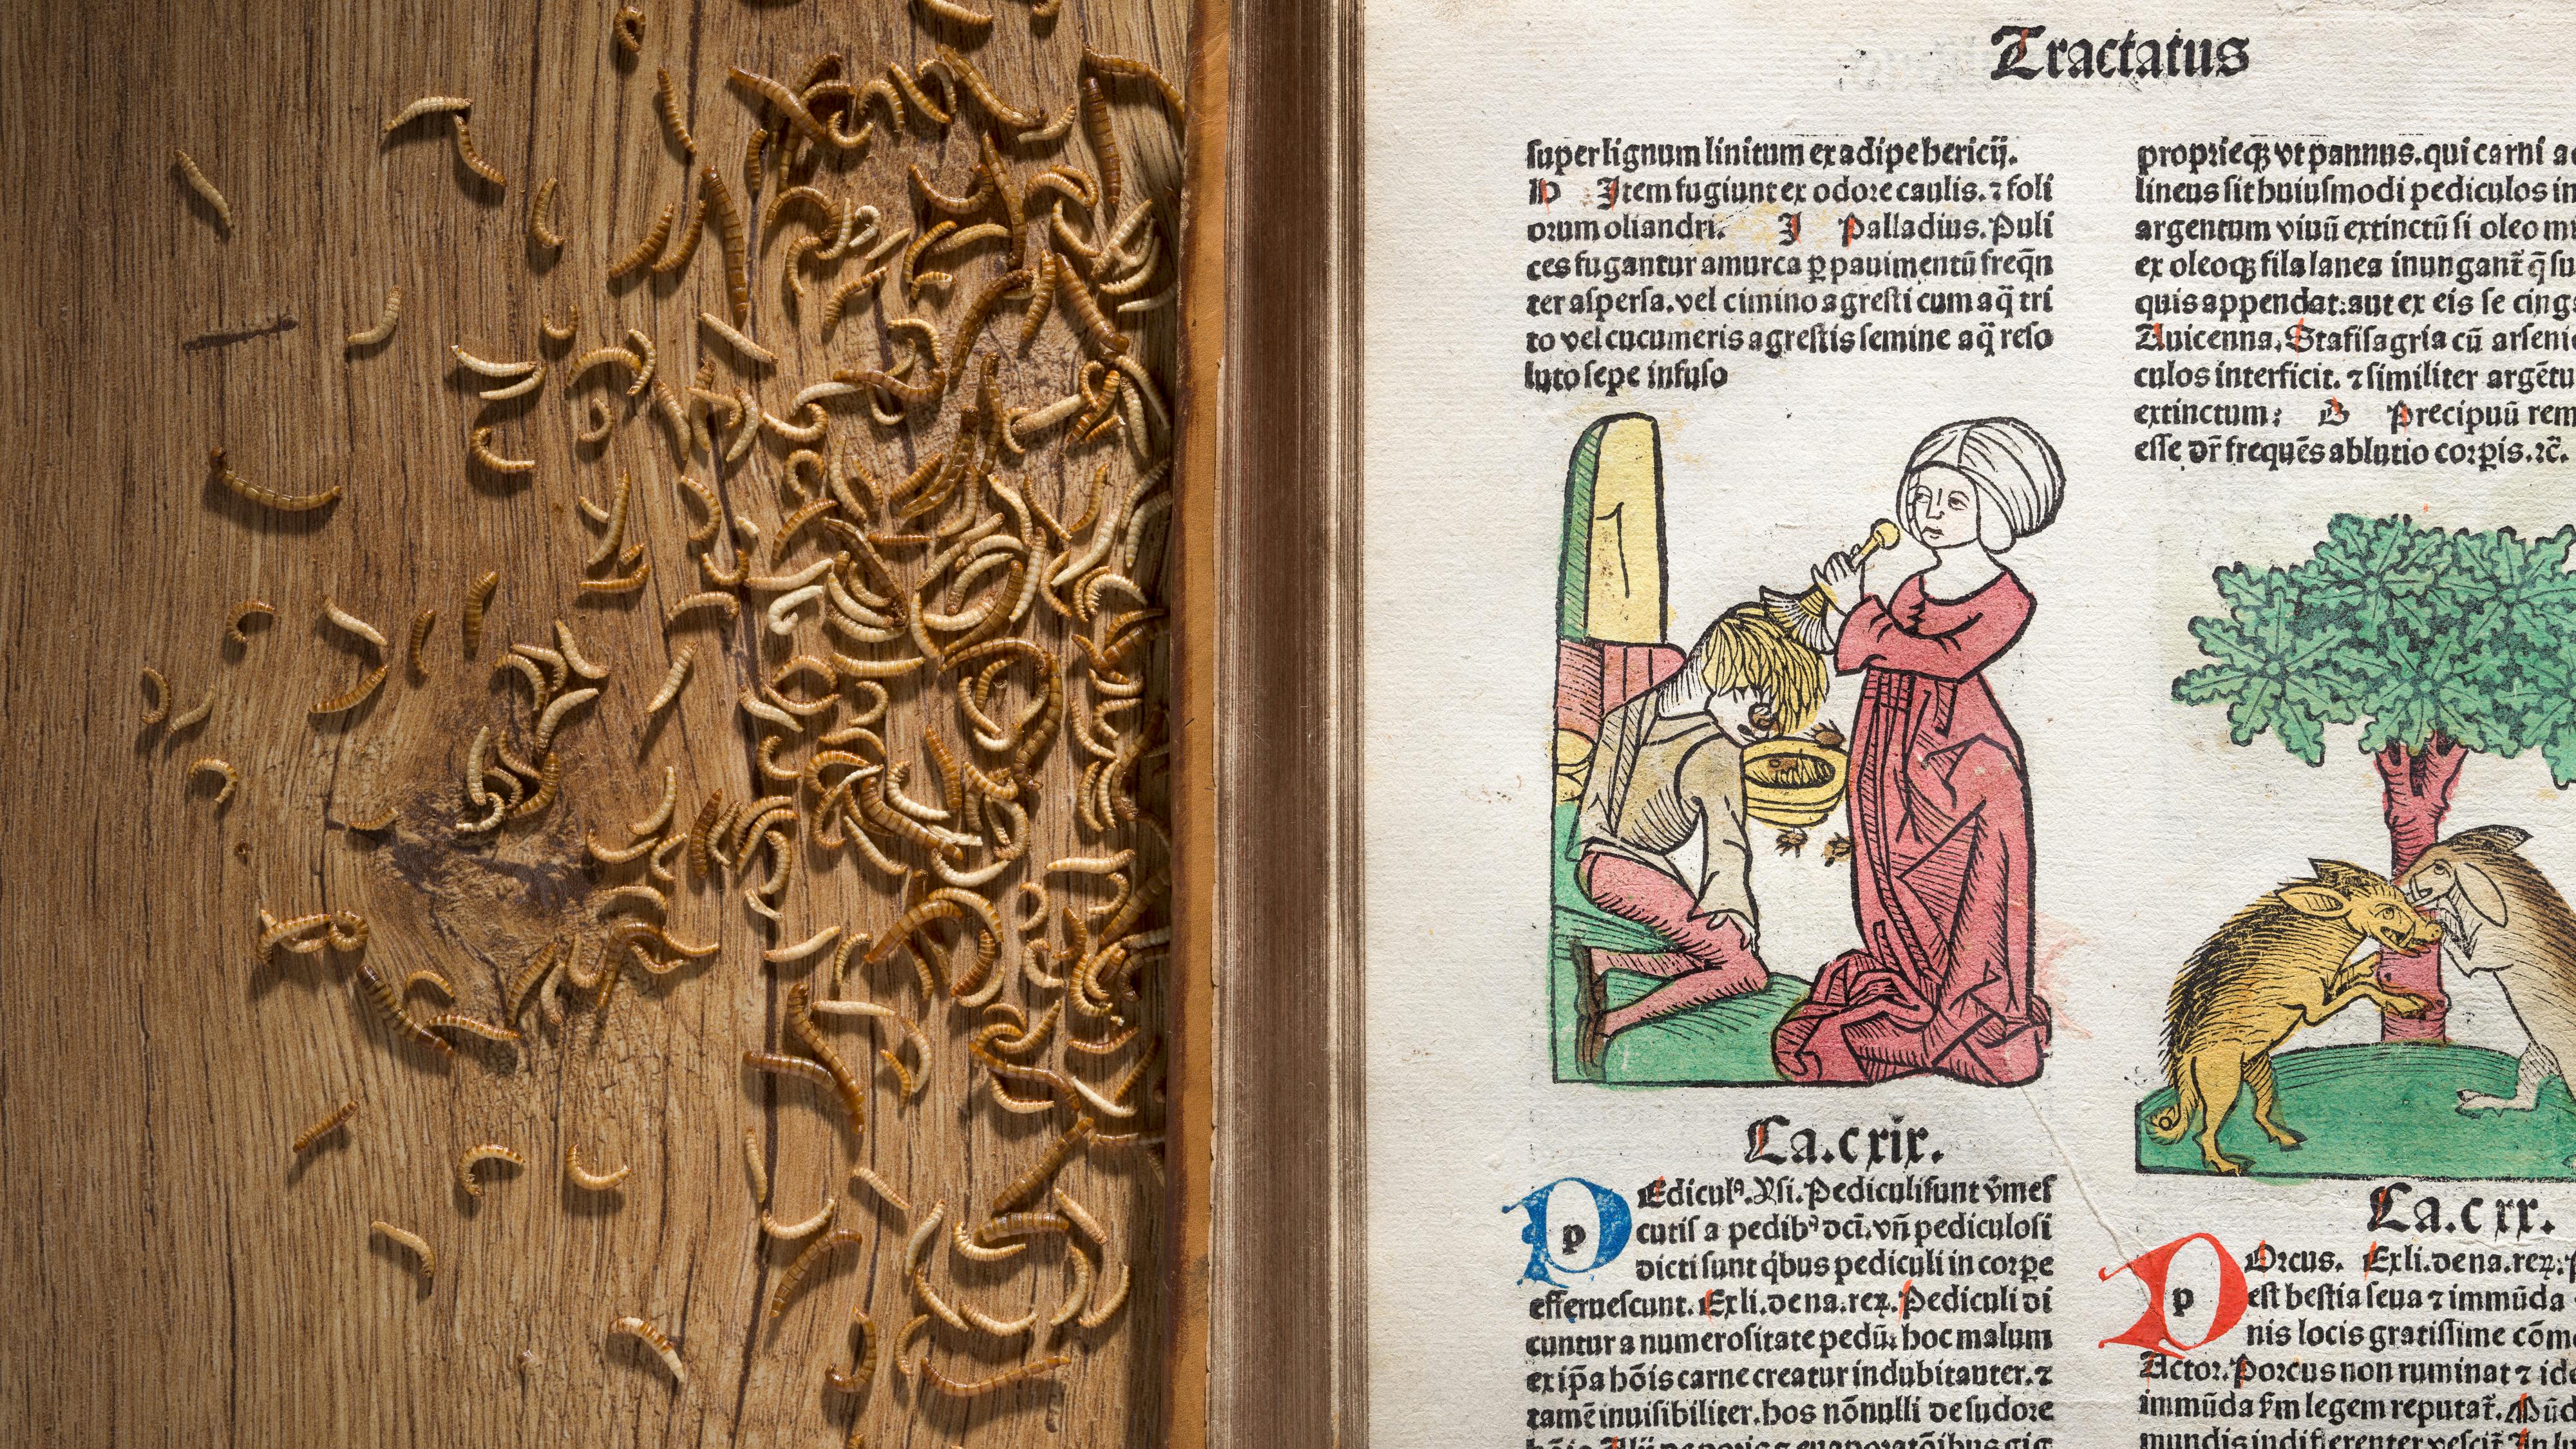 Tractatus
super lignum linitum ex adipe hericij.
D Item fugiunt ex odore caulis. ⁊ foli
orum oliandri. J Palladius. Puli
ces fugantur amurca ꝑ pauimentū freq̄n
ter aspersa. vel cimino agresti cum aq̄ tri
to vel cucumeris agrestis semine aq̄ reso
luto sepe infuso
Ca. cxix.
PEdiculꝰ. Ysi. Pediculi sunt v̄mes
cutis a pedibꝰ dcī. vn̄ pediculosi
dicti sunt q̇bus pediculi in corꝑe
efferuescunt. Ex li. de na. reꝝ. Pediculi di
cuntur a numerositate pedū. hoc malum
ex ip̄a hōis carne creatur indubitanter. ⁊
tamē inuisibiliter. hos nōnulli de sudore
proprieqꝫ vt pannus. qui carni a
lineus sit huiusmodi pediculos in
argentum viuū extinctū si oleo m
ex oleoqꝫ fila lanea inungant̄ q̄ su
quis appendat: aut ex eis se cing
Auicenna. Stafisagria cū arseni
culos interficit. ⁊ similiter argētu
extinctum: B Precipuū rem
esse dr̄ frequēs ablutio corꝑis. ⁊c̄.
Ca. cxx.
POrcus. Ex li. de na. reꝝ.
est bestia seua ⁊ immūda
nis locis gratissime cōm
Actor. Porcus non ruminat ⁊ ide
immūda ẜm legem reputat̄. Mūd
mundis indifferenter vescit̄